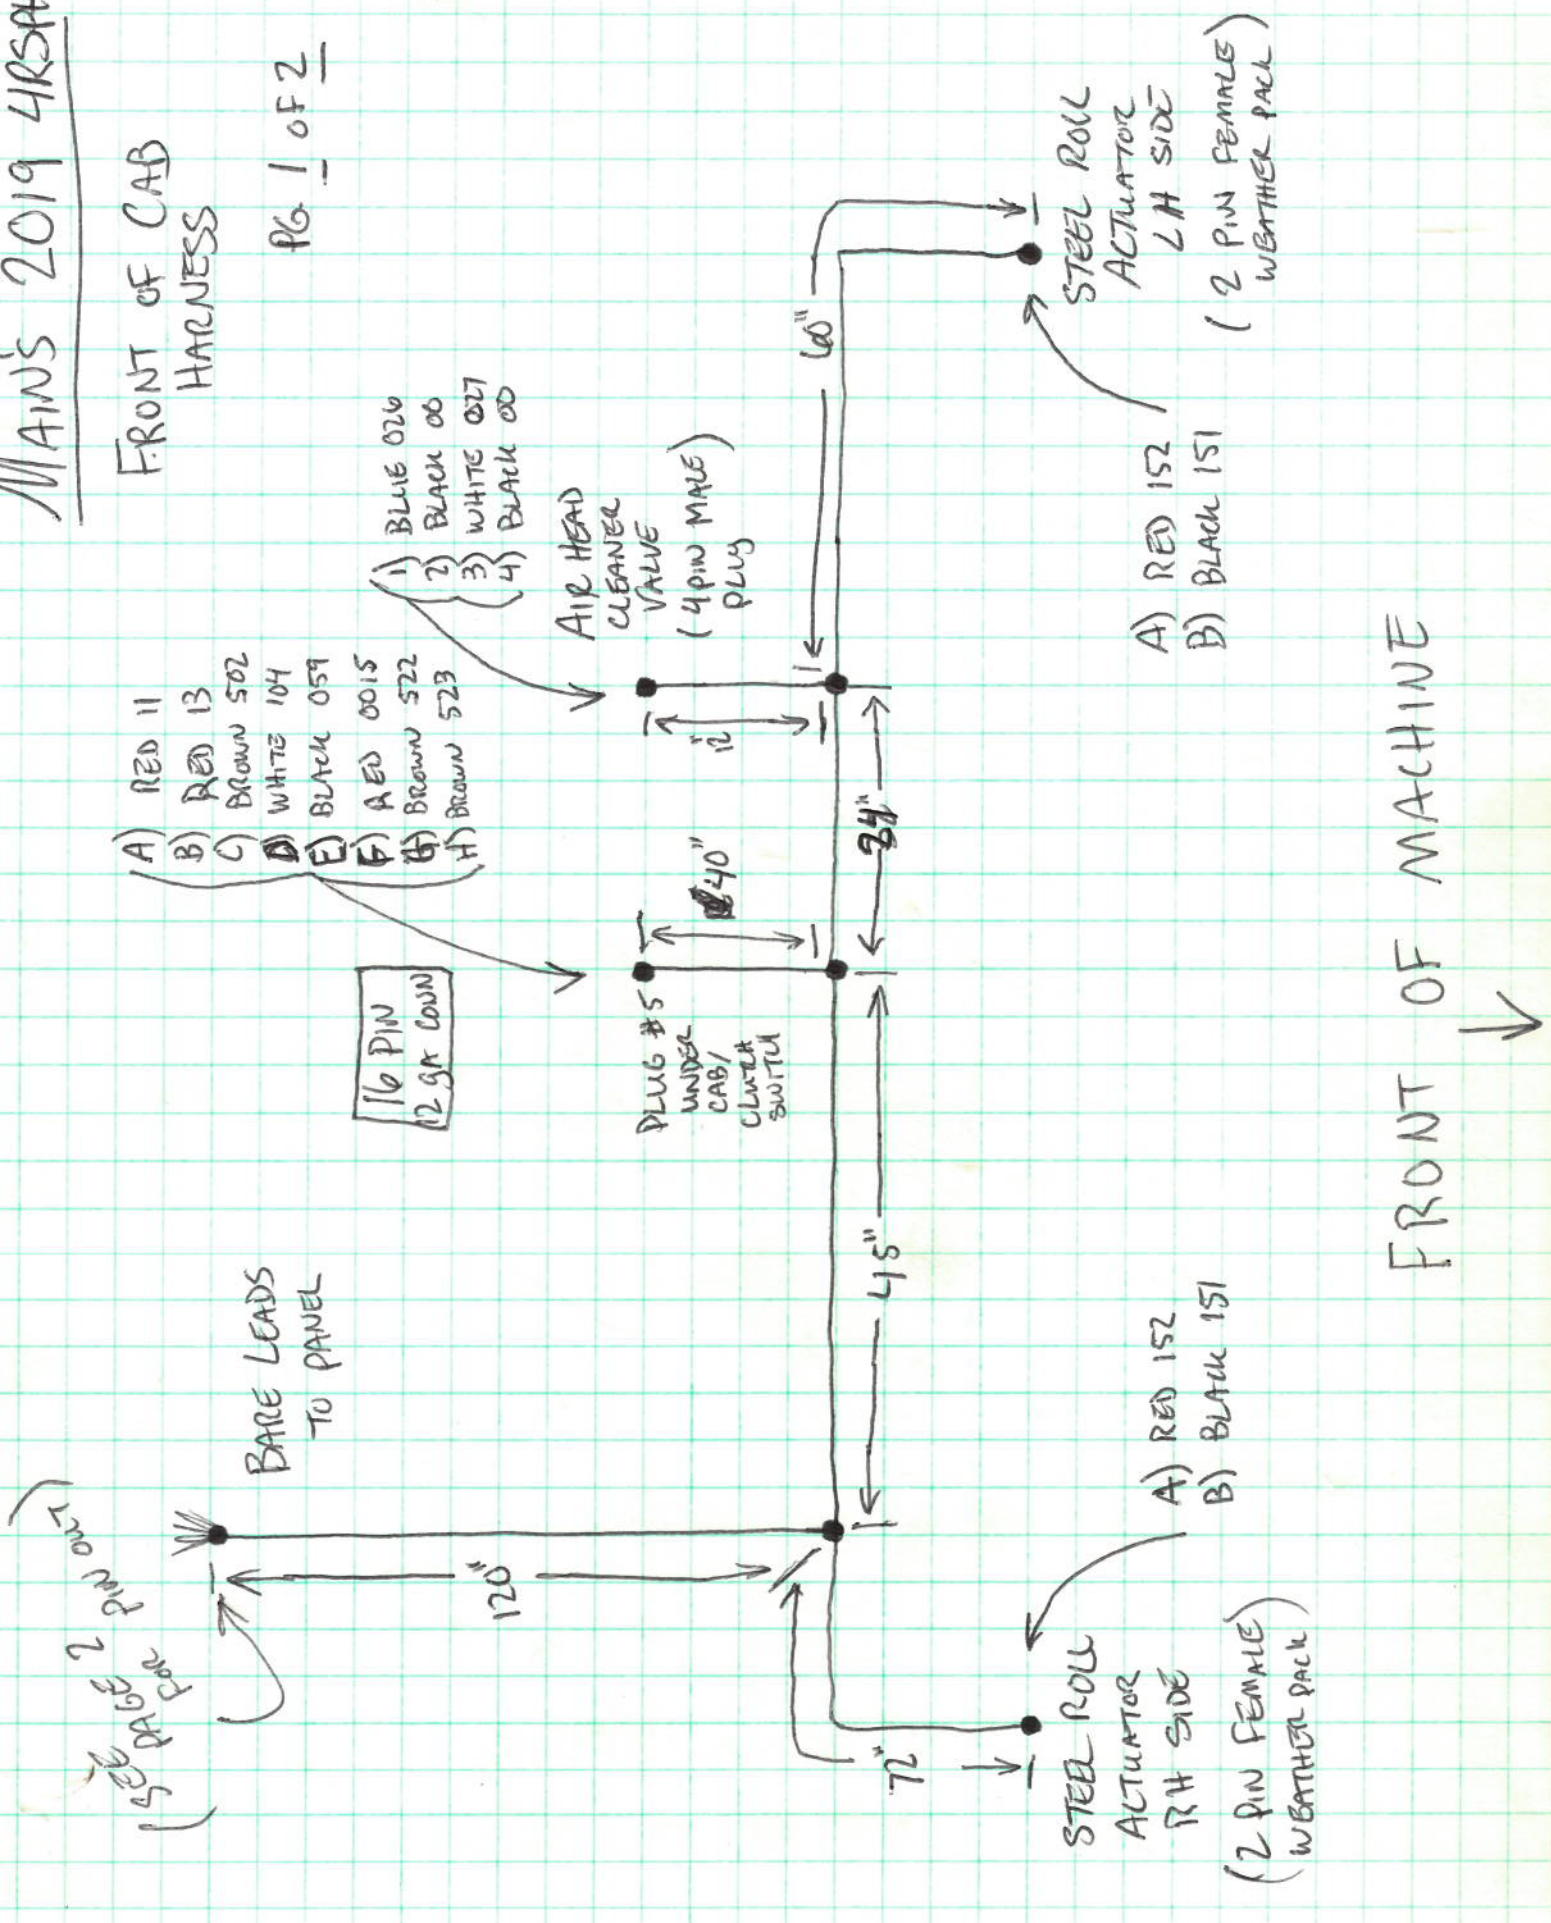 MAIN'S 2019 4RSPH
FRONT OF CAB
HARNESS
PG 1 OF 2
(SEE PAGE 2
FOR PIN OUT)
BARE LEADS
TO PANEL
120"
72"
16 PIN
12 GA CONN
A) RED 11
B) RED 13
C) BROWN 502
D) WHITE 104
E) BLACK 059
F) RED 0015
G) BROWN 522
H) BROWN 523
PLUG #5
UNDER
CAB/
CLUTCH
SWITCH
40"
1) BLUE 026
2) BLACK 00
3) WHITE 027
4) BLACK 00
AIR HEAD
CLEANER
VALVE
(4 PIN MALE)
PLUG
12"
60"
45"
34"
STEEL ROLL
ACTUATOR
RH SIDE
(2 PIN FEMALE)
WEATHER PACK
A) RED 152
B) BLACK 151
A) RED 152
B) BLACK 151
STEEL ROLL
ACTUATOR
LH SIDE
(2 PIN FEMALE)
WEATHER PACK
FRONT OF MACHINE